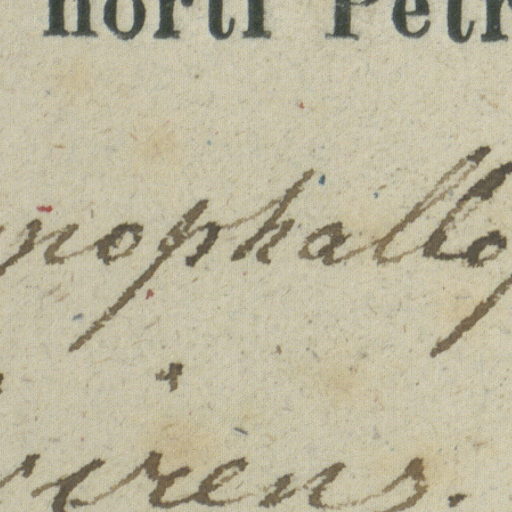 horti Petr
nophallo
virens.